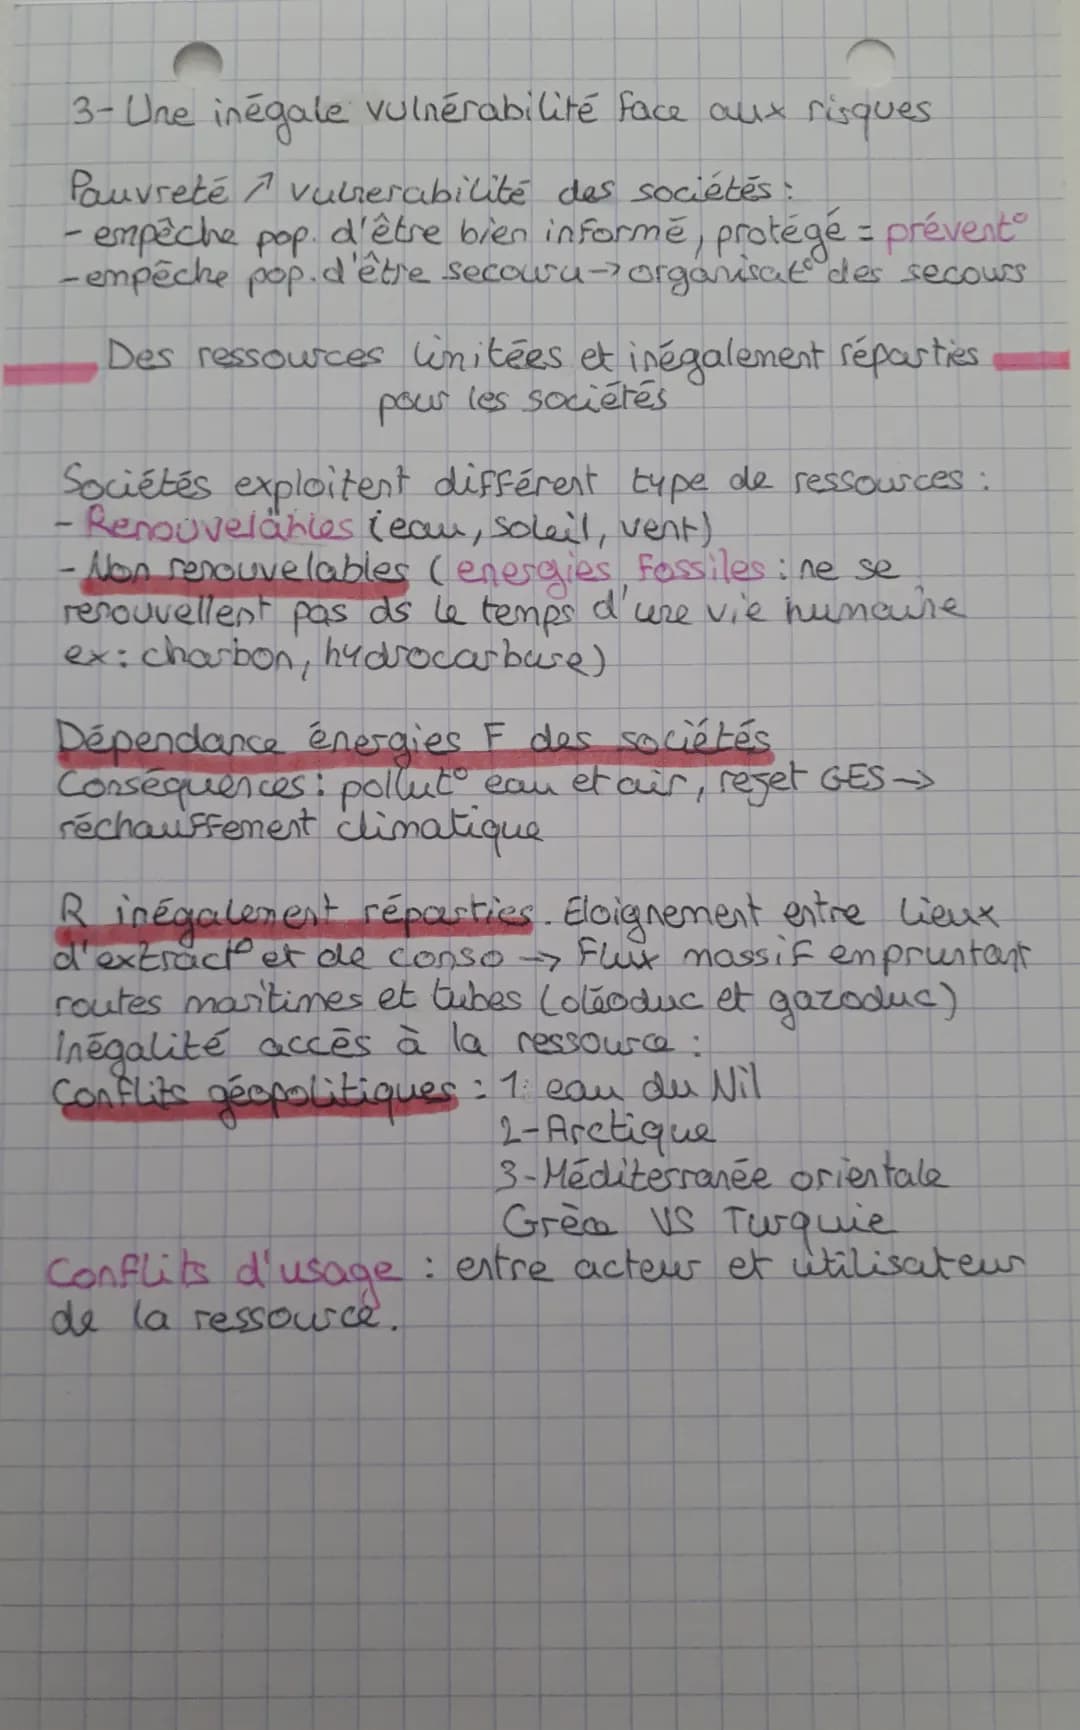 3-Une inégale vulnérabilité face aux risques
Pauvreté ↗ vulnerabilité des sociétés :
- empêche pop. d'être bien informé, protégé = prévent°
- empêche pop. d'être secouru → organisat° des secours
Des ressources limitées et inégalement réparties
pour les sociétés
Sociétés exploitent différent type de ressources :
- Renouvelables (eau, soleil, vent)
- Non renouvelables (energies fossiles : ne se
renouvellent pas ds le temps d'une vie humaine
ex : charbon, hydrocarbure)
Dépendance énergies F des sociétés
Conséquences : pollut° eau et air, rejet GES →
réchauffement climatique
R inégalement réparties. Eloignement entre lieux
d'extract° et de conso → Flux massif empruntant
routes maritimes et tubes (oléoduc et gazoduc)
Inégalité accès à la ressource :
Conflits géopolitiques : 1: eau du Nil
2-Arctique
3-Méditerranée orientale
Grèce VS Turquie
Conflits d'usage : entre acteur et utilisateur
de la ressource.